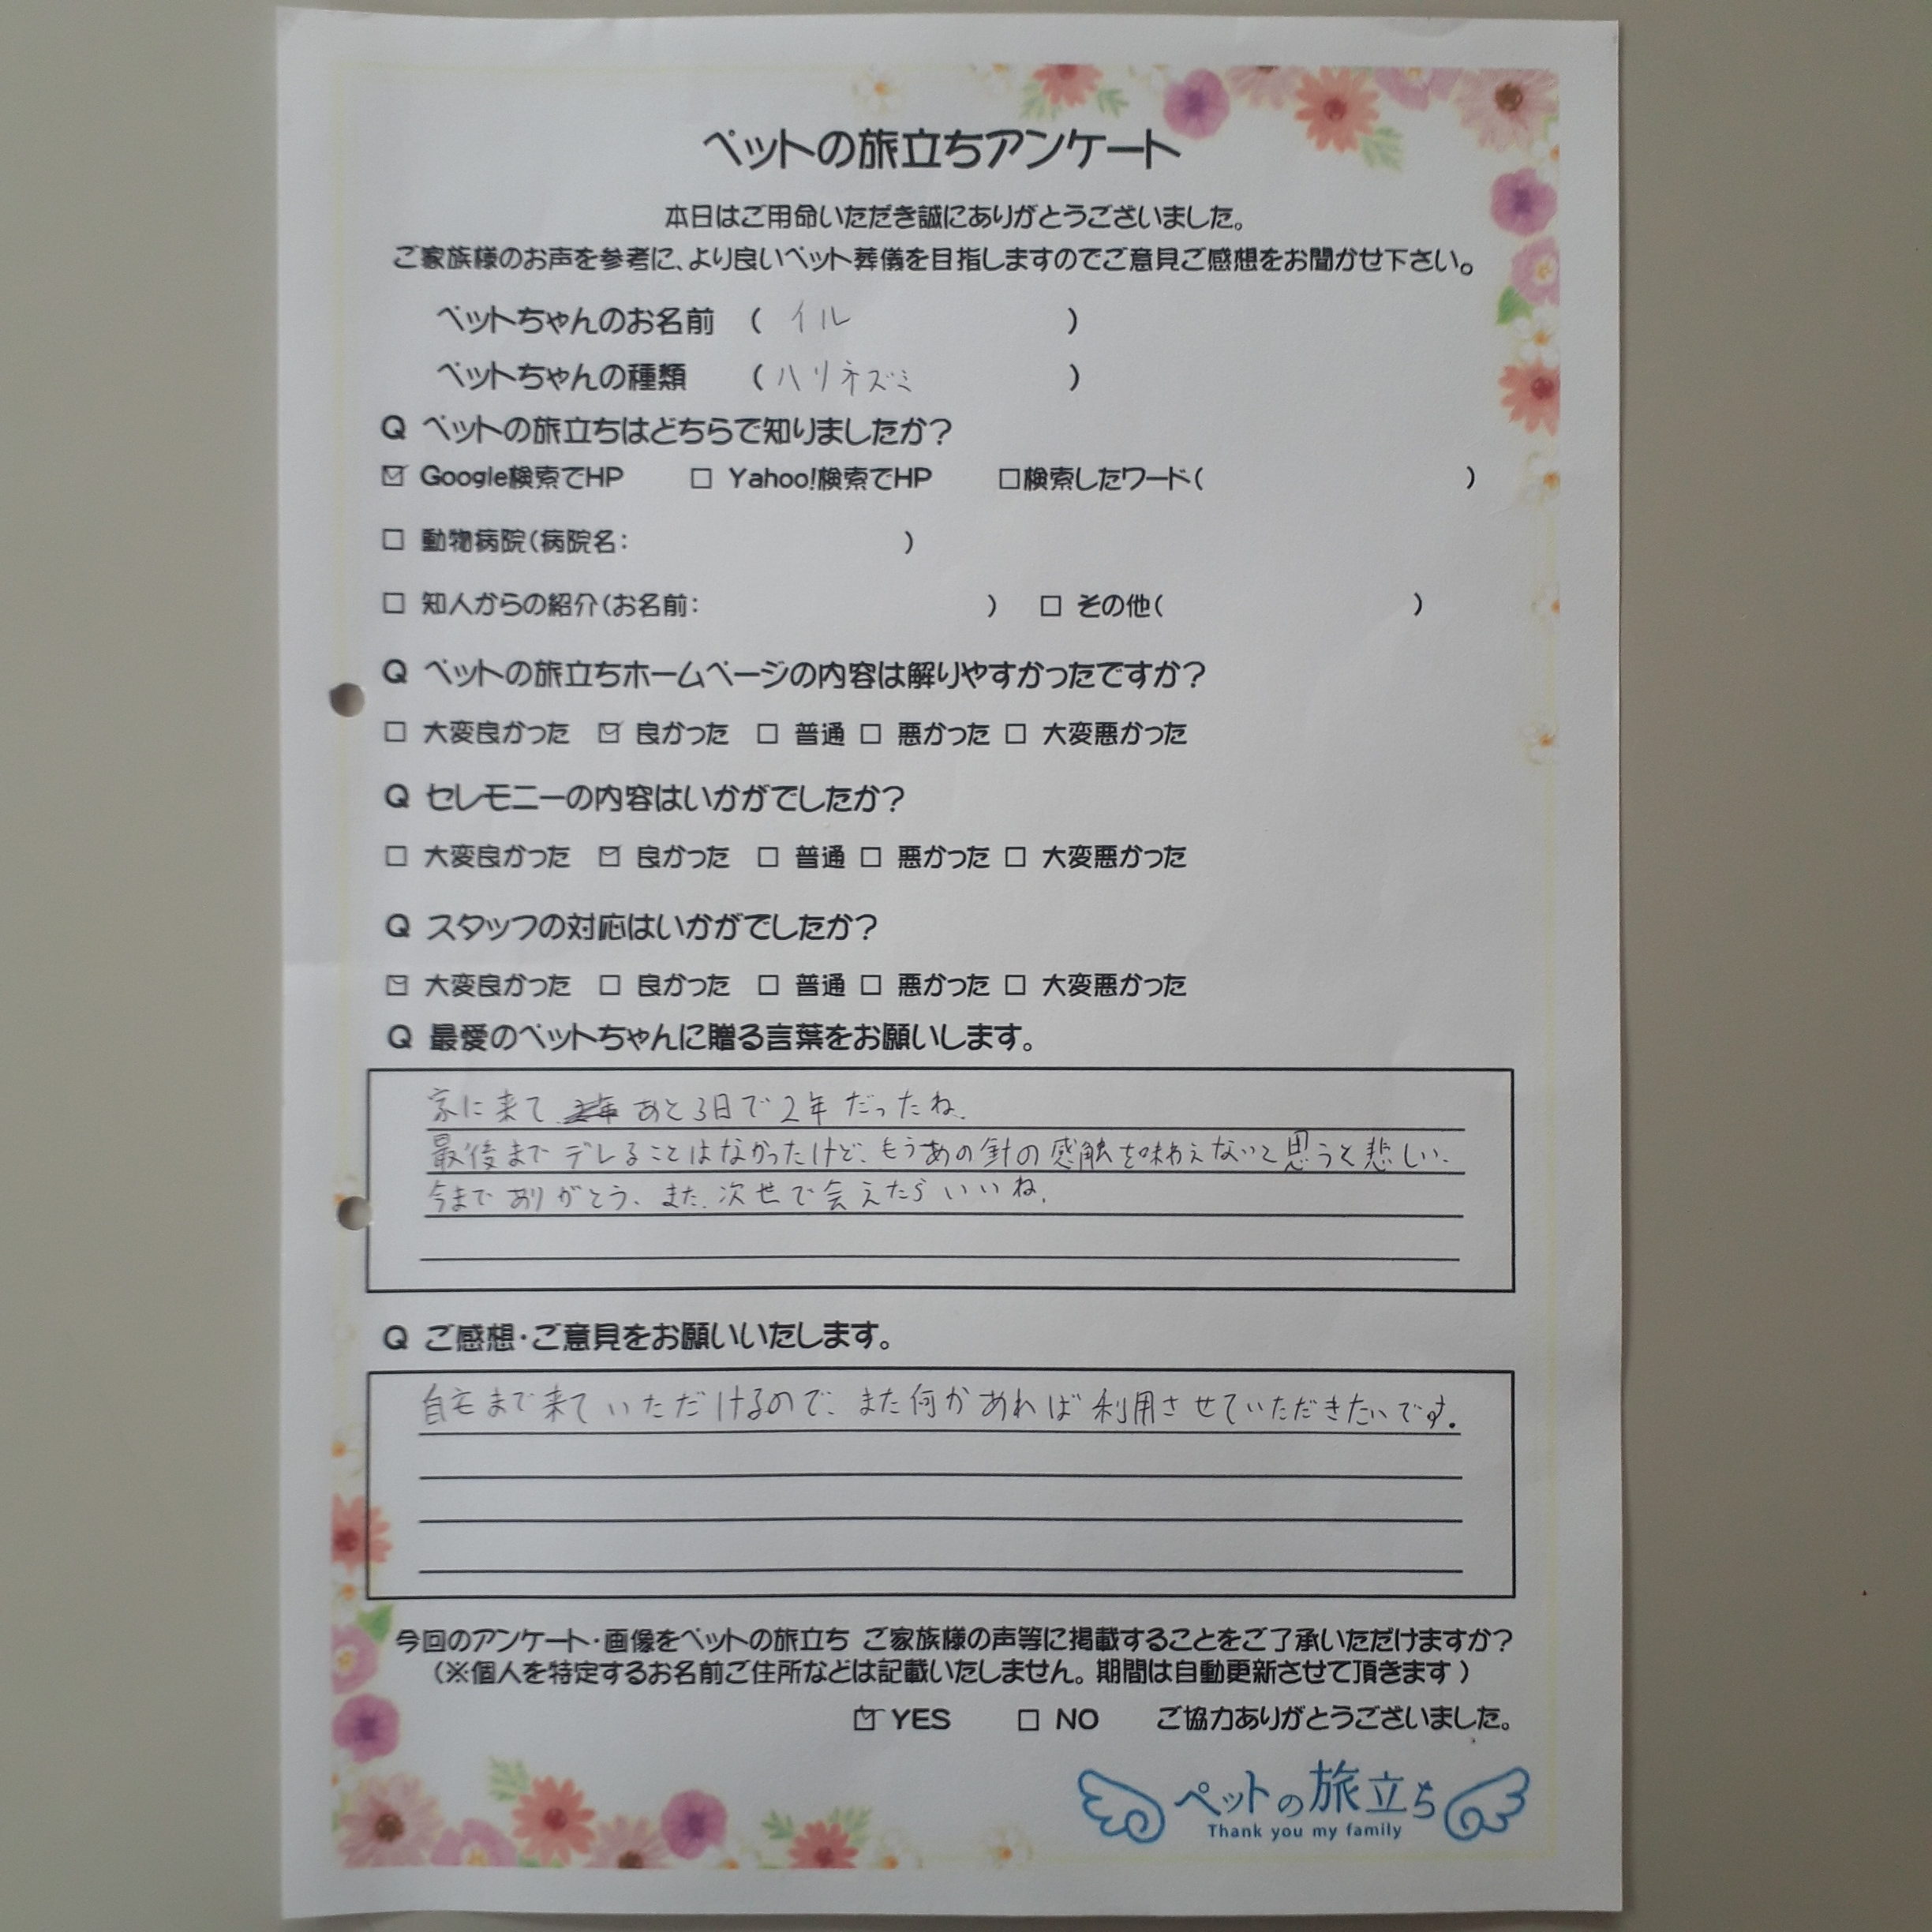 ペットの旅立ちアンケート
本日はご用命いただき誠にありがとうございました。
ご家族様のお声を参考に、より良いペット葬儀を目指しますのでご意見ご感想をお聞かせ下さい。
ペットちゃんのお名前 ( イル )
ペットちゃんの種類 ( ハリネズミ )
Q ペットの旅立ちはどちらで知りましたか?
☑ Google検索でHP □ Yahoo!検索でHP □検索したワード( )
□ 動物病院(病院名: )
□ 知人からの紹介(お名前: ) □ その他( )
Q ペットの旅立ちホームページの内容は解りやすかったですか?
□ 大変良かった ☑ 良かった □ 普通 □ 悪かった □ 大変悪かった
Q セレモニーの内容はいかがでしたか?
□ 大変良かった ☑ 良かった □ 普通 □ 悪かった □ 大変悪かった
Q スタッフの対応はいかがでしたか?
☑ 大変良かった □ 良かった □ 普通 □ 悪かった □ 大変悪かった
Q 最愛のペットちゃんに贈る言葉をお願いします。
家に来て あと3日で2年だったね.
最後までデレることはなかったけど、もうあの針の感触を味わえないと思うと悲しい.
今までありがとう、また、次世で会えたらいいね.
Q ご感想・ご意見をお願いいたします。
自宅まで来ていただけるので、また何かあれば利用させていただきたいです。
今回のアンケート・画像をペットの旅立ち ご家族様の声等に掲載することをご了承いただけますか?
(※個人を特定するお名前ご住所などは記載いたしません。期間は自動更新させて頂きます)
☑ YES □ NO ご協力ありがとうございました。
ペットの旅立ち
Thank you my family